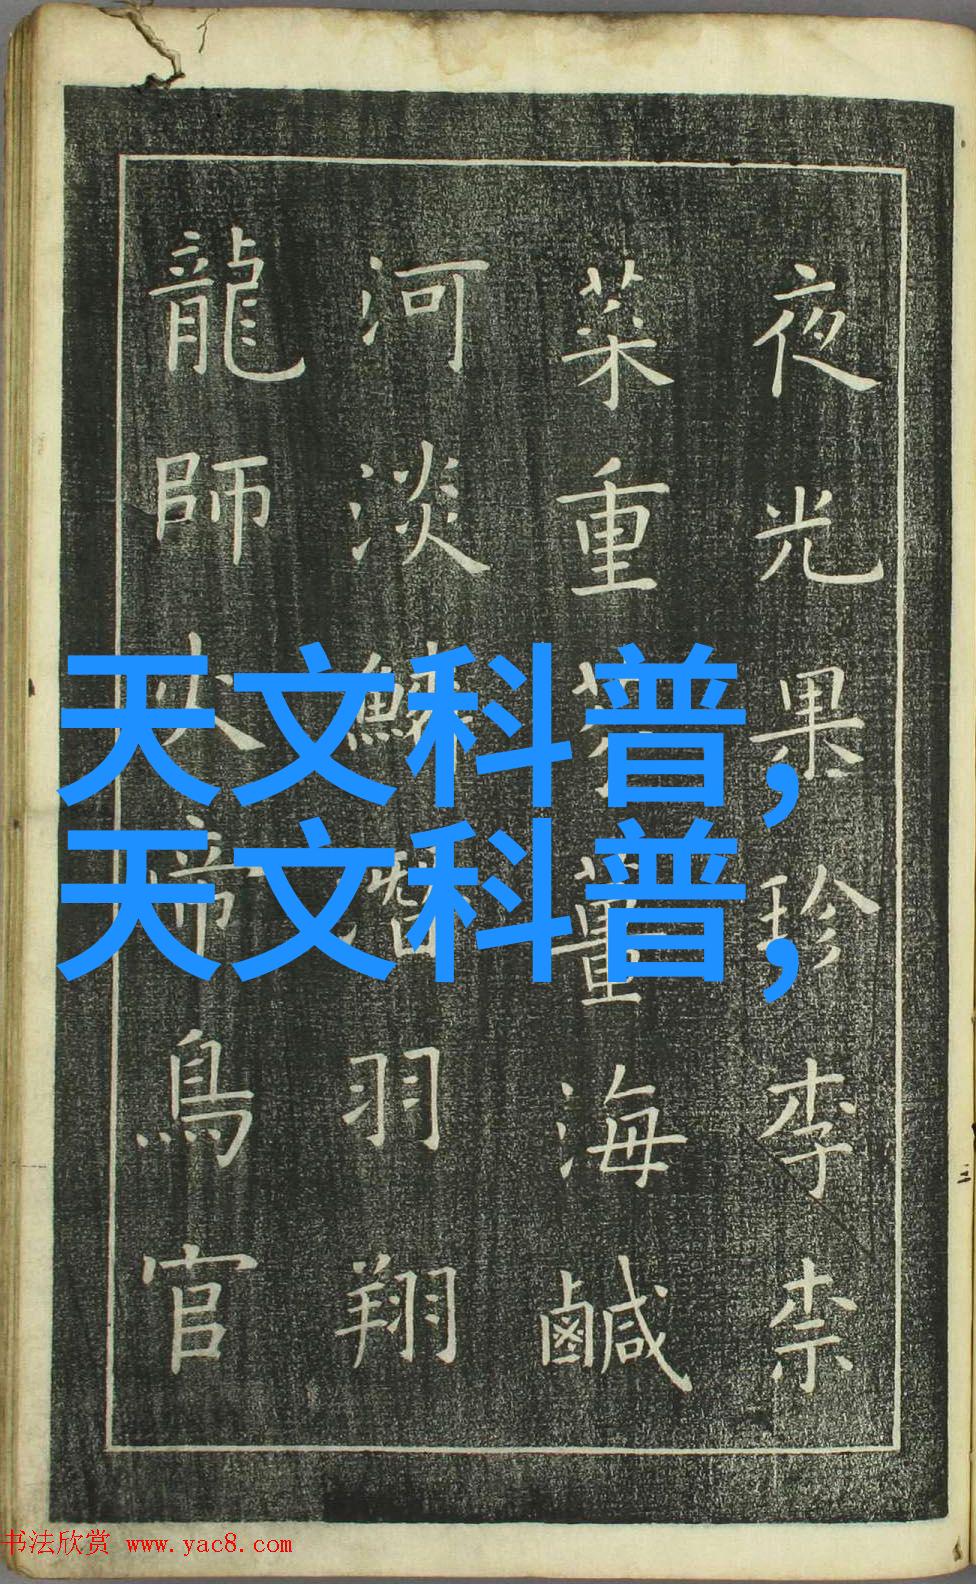 夜光果珍李柰
菜重芥薑海鹹
河淡鱗潛羽翔
龍師火帝鳥官
天文科普,
天文科普,
书法欣赏 www.yac8.com